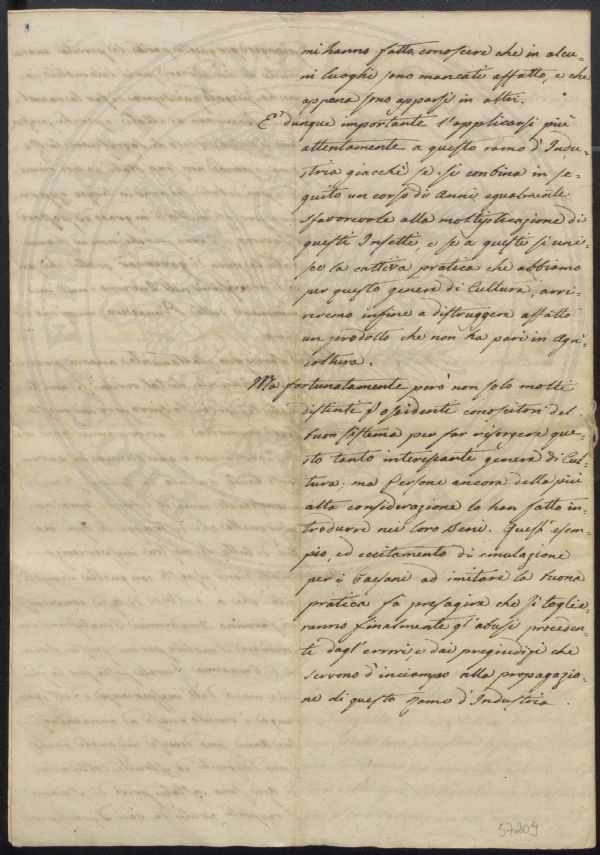 mi hanno fatto conoscere che in alcu-
ni luoghi sono mancati affatto, e che
appena sono apparsi in altri.
E' dunque importante l'applicarsi più
attentamente a questo ramo d'Indu-
stria giacchè se si conbina in se-
guito un corso di Anni egualmente
sfavorevole alla moltiplicazione di
questi Insetti, e se a questi si uni-
sce la cattiva pratica che abbiamo
per questo genere di Cultura, arri-
veremo infine a distruggere affatto
un prodotto che non ha pari in Agri-
coltura.
Ma fortunatamente però non solo molti
distinti Possidenti conoscitori del
buon sistema per far risorgere que-
sto tanto interessante genere di Cul-
tura: ma Persone ancora della più
alta considerazione lo han fatto in-
trodurre nei loro Beni. Quest'esem-
pio, ed eccitamento di emulazione
per i Paesani ad imitare la buona
pratica fa presagire che si toglie-
ranno finalmente gl'abusi proceden-
ti dagl'errori, e dai pregiudizj che
servono d'inciampo alla propagazio-
ne di questo ramo d'Industria.
57209